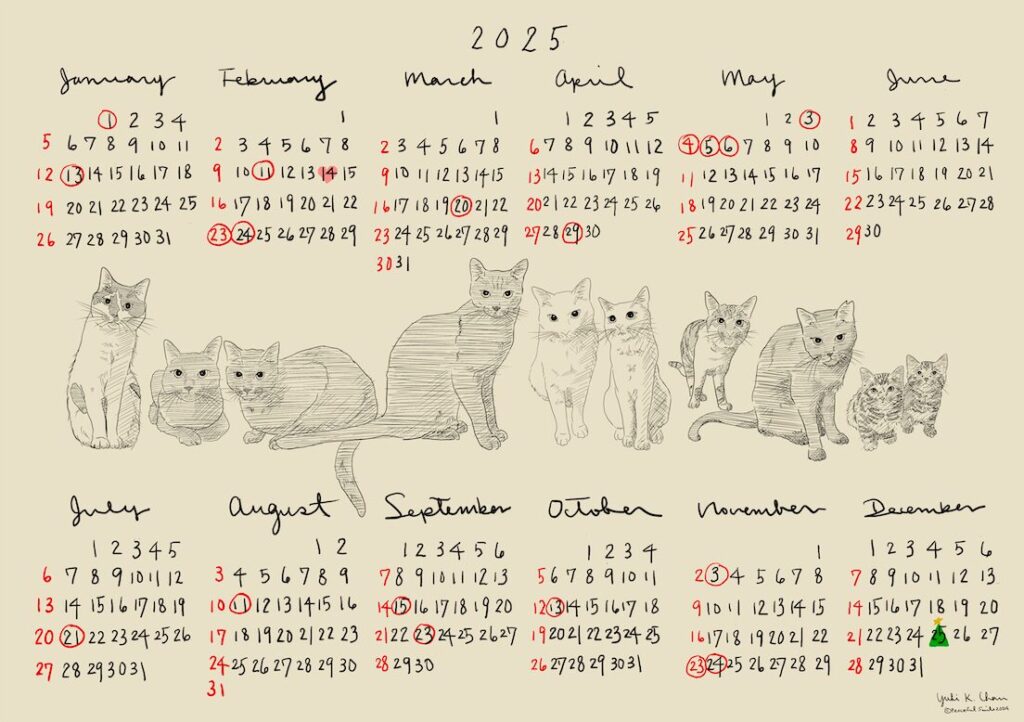 2025
January
1 2 3 4
5 6 7 8 9 10 11
12 13 14 15 16 17 18
19 20 21 22 23 24 25
26 27 28 29 30 31
February
1
2 3 4 5 6 7 8
9 10 11 12 13 14 15
16 17 18 19 20 21 22
23 24 25 26 27 28 29
March
1
2 3 4 5 6 7 8
9 10 11 12 13 14 15
16 17 18 19 20 21 22
23 24 25 26 27 28 29
30 31
April
1 2 3 4 5
6 7 8 9 10 11 12
13 14 15 16 17 18 19
20 21 22 23 24 25 26
27 28 29 30
May
1 2 3
4 5 6 7 8 9 10
11 12 13 14 15 16 17
18 19 20 21 22 23 24
25 26 27 28 29 30 31
June
1 2 3 4 5 6 7
8 9 10 11 12 13 14
15 16 17 18 19 20 21
22 23 24 25 26 27 28
29 30
July
1 2 3 4 5
6 7 8 9 10 11 12
13 14 15 16 17 18 19
20 21 22 23 24 25 26
27 28 29 30 31
August
1 2
3 4 5 6 7 8 9
10 11 12 13 14 15 16
17 18 19 20 21 22 23
24 25 26 27 28 29 30
31
September
1 2 3 4 5 6
7 8 9 10 11 12 13
14 15 16 17 18 19 20
21 22 23 24 25 26 27
28 29 30
October
1 2 3 4
5 6 7 8 9 10 11
12 13 14 15 16 17 18
19 20 21 22 23 24 25
26 27 28 29 30 31
November
1
2 3 4 5 6 7 8
9 10 11 12 13 14 15
16 17 18 19 20 21 22
23 24 25 26 27 28 29
December
1 2 3 4 5 6
7 8 9 10 11 12 13
14 15 16 17 18 19 20
21 22 23 24 25 26 27
28 29 30 31
Yuki K. Chan
©